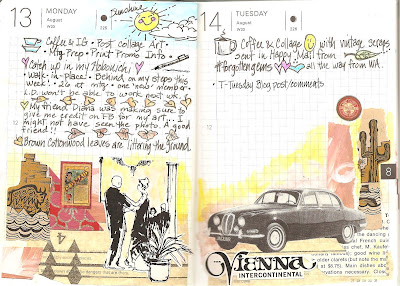 13 MONDAY
August
W33
225
Sunshine
Coffee & IG • Post collage Art •
Mtg Prep • Print Promo Info •
Catch up in my Hobonichi
• Walk-in-Place! • Behind on my steps this
week! • 26 at mtg • one new member •
L.D. won't be able to work next wk.
My friend Diana was making sure to
give me credit on FB for my art... I
might not have seen the photo. A good
friend!!
Brown Cottonwood leaves are littering the ground.
14 TUESDAY
August
W33
226
Coffee & Collage with vintage scraps
sent in Happy Mail from
#forgottengems all the way from WA.
T-Tuesday Blog post/comments
8
Vienna
INTERCONTINENTAL